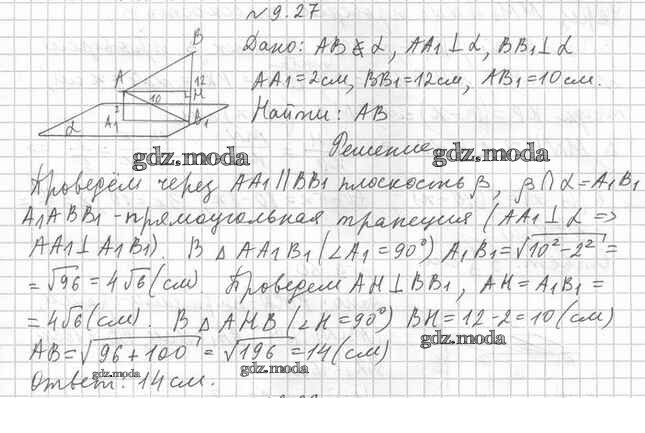 № 9.27
Дано: AB ⊄ α, AA1 ⊥ α, BB1 ⊥ α
AA1 = 2см, BB1 = 12см, AB1 = 10см.
Найти: AB
B
A
12
10
H
2
A1
B1
α
Решение
gdz.moda
gdz.moda
Проведём через AA1 || BB1 плоскость β, β ∩ α = A1B1
A1ABB1 - прямоугольная трапеция (AA1 ⊥ α =>
AA1 ⊥ A1B1). В △ AA1B1 (∠A1 = 90°) A1B1 = √10² - 2² =
= √96 = 4√6 (см) Проведем AH ⊥ BB1, AH = A1B1 =
= 4√6 (см). В △ AHB (∠H = 90°) BH = 12 - 2 = 10 (см)
AB = √96 + 100 = √196 = 14 (см)
gdz.moda
gdz.moda
gdz.moda
Ответ: 14 см.